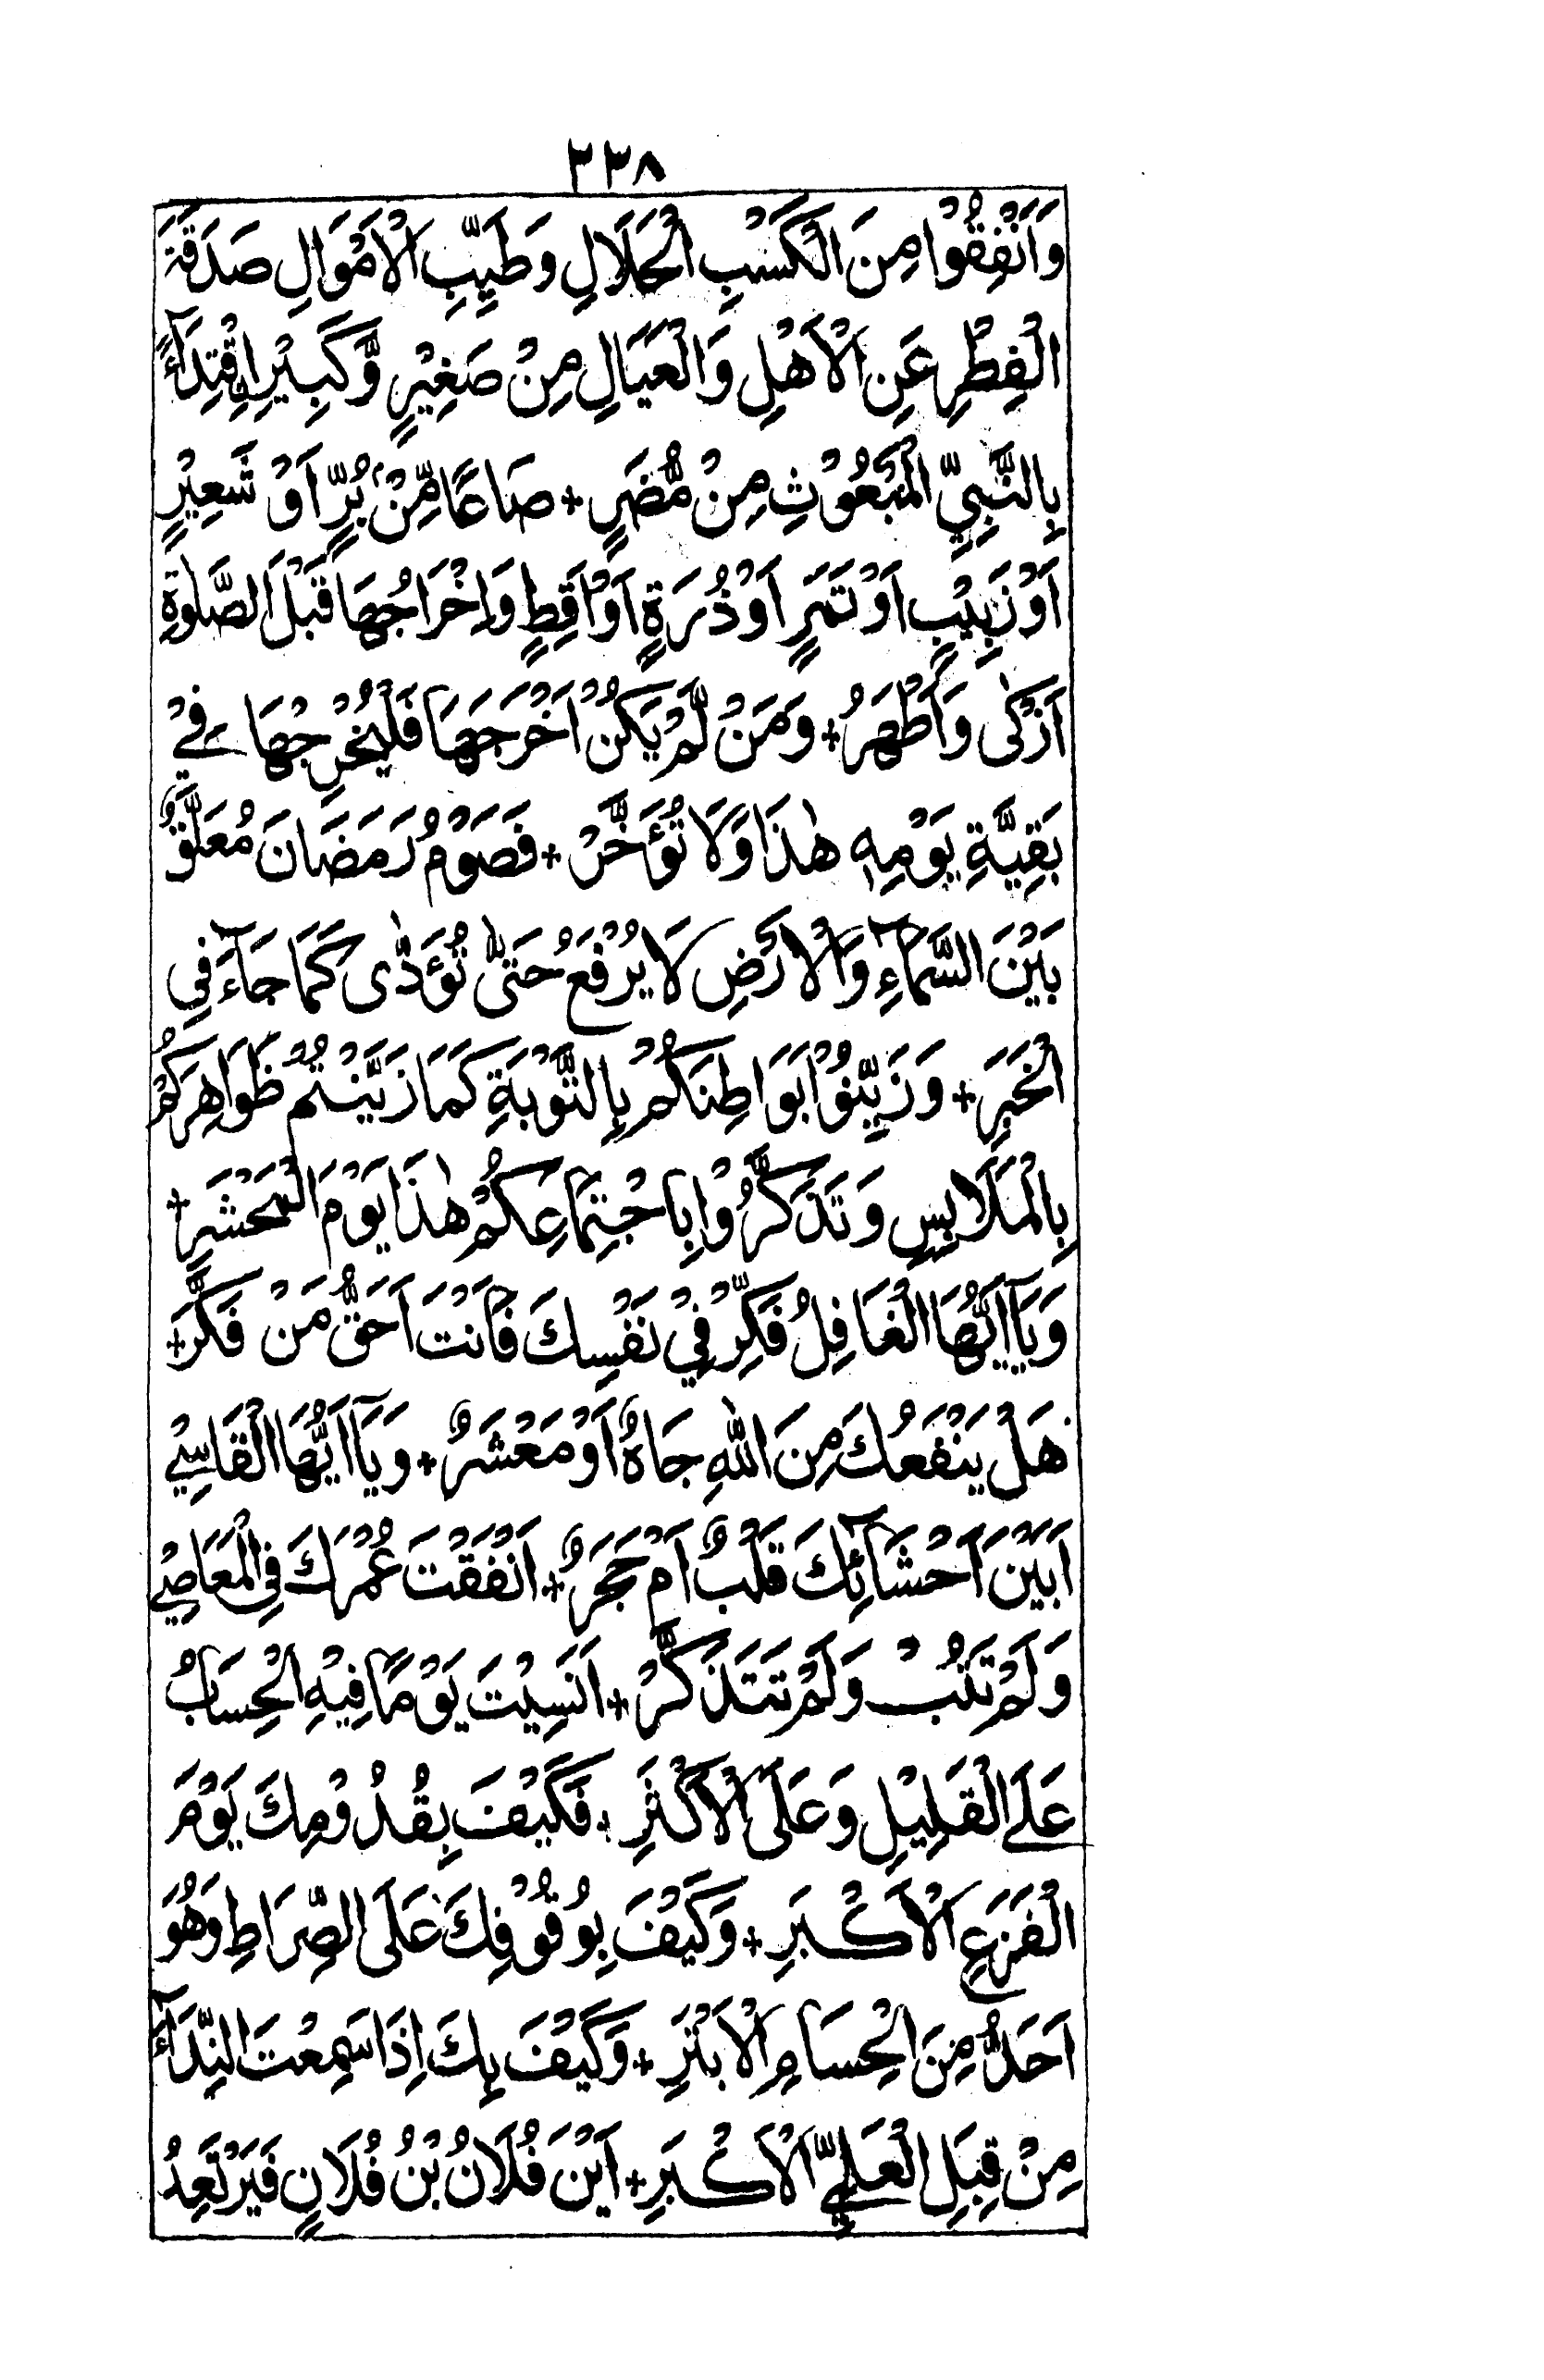 ٢٣٨
وَاَنْفِقُوْا مِنَ الْكَسْبِ الْحَلَالِ وَطَيِّبِ الْاَمْوَالِ صَدَقَةَ
الْفِطْرِ عَنِ الْاَهْلِ وَالْعَيَالِ مِنْ صَغِيْرٍ وَّكَبِيْرٍ اِقْتِدَآءً
بِالنَّبِيِّ الْمَبْعُوْثِ مِنْ مُّضَرٍ + صَاعًا مِّنْ بُرٍّ اَوْ شَعِيْرٍ
اَوْ زَبِيْبٍ اَوْ تَمَرٍ اَوْ ذُرَةٍ اَوْ اَقِطٍ وَاِخْرَاجُهَا قَبْلَ الصَّلٰوةِ
اَزْكٰى وَاَطْهَرُ + وَمَنْ لَّمْ يَكُنْ اَخْرَجَهَا فَلْيُخْرِجْهَا فِيْ
بَقِيَّةِ يَوْمِهٖ هٰذَا وَلَا تُؤَخَّرْ + فَصَوْمُ رَمَضَانَ مُعَلَّقٌ
بَيْنَ السَّمَآءِ وَالْاَرْضِ لَا يُرْفَعُ حَتّٰى تُؤَدّٰى كَمَا جَآءَ فِي
الْخَبَرِ + وَزَيِّنُوْا بَوَاطِنَكُمْ بِالتَّوْبَةِ كَمَا زَيَّنْتُمْ ظَوَاهِرَكُمْ
بِالْمَلَابِسِ وَتَذَكَّرُوْا بِاجْتِمَاعِكُمْ هٰذَا يَوْمَ الْمَحْشَرِ +
وَيَآ اَيُّهَا الْغَافِلُ فَكِّرْ فِيْ نَفْسِكَ فَاَنْتَ اَحَقُّ مَنْ فَكَّرَ +
هَلْ يَنْفَعُكَ مِنَ اللّٰهِ جَاهٌ اَوْ مَعْشَرٌ + وَيَآ اَيُّهَا الْقَاسِيْ
اَبَيْنَ اَحْشَآئِكَ قَلْبٌ اَمْ حَجَرٌ + اَنْفَقْتَ عُمْرَكَ فِي الْمَعَاصِيْ
وَلَمْ تَتُبْ وَلَمْ تَتَذَكَّرْ + اَنَسِيْتَ يَوْمًا فِيْهِ الْحِسَابُ
عَلَى الْقَلِيْلِ وَعَلَى الْاَكْثَرِ + فَكَيْفَ بِقُدُوْمِكَ يَوْمَ
الْفَزَعِ الْاَكْبَرِ + وَكَيْفَ بِوُقُوْفِكَ عَلَى الصِّرَاطِ وَهُوَ
اَحَدُّ مِنَ الْحِسَامِ الْاَبْتَرِ + وَكَيْفَ بِكَ اِذَا سَمِعْتَ النِّدَآءَ
مِنْ قِبَلِ الْعَلِيِّ الْاَكْبَرِ + اَيْنَ فُلَانُ بْنُ فُلَانٍ فَيَرْتَعِدُ